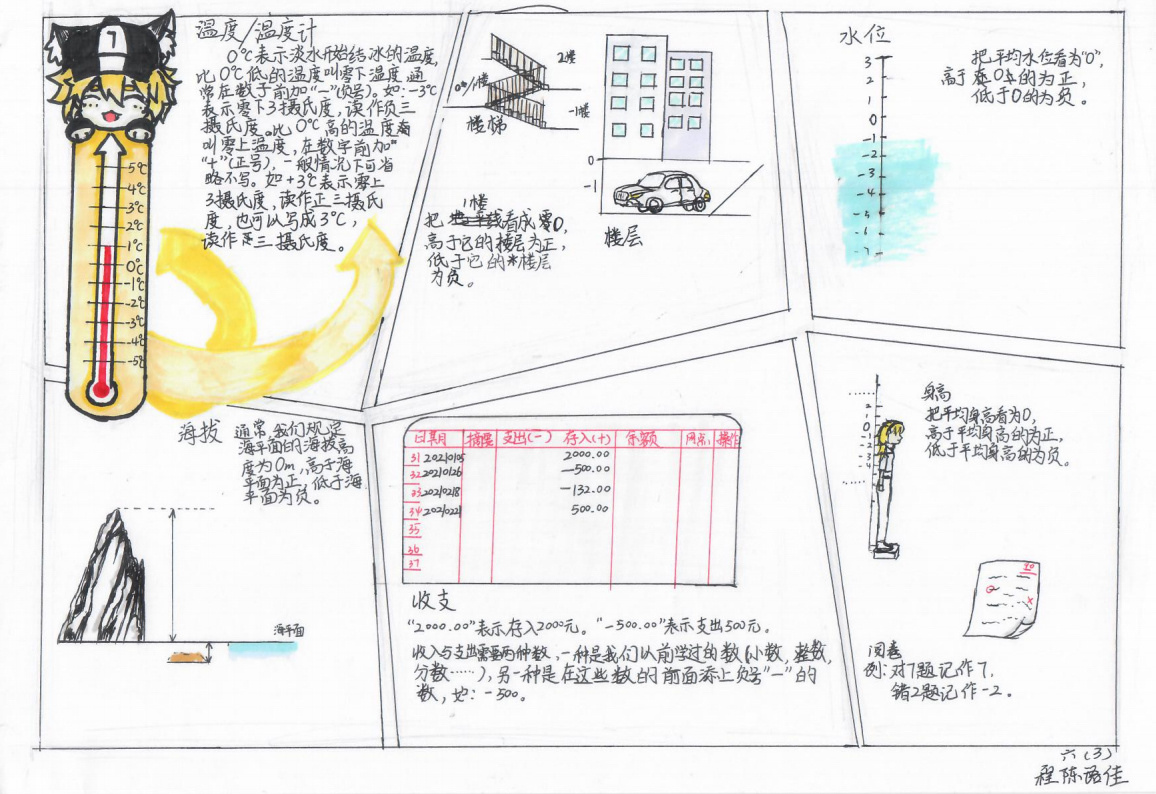 温度/温度计
0℃表示淡水开始结冰的温度,
比0℃低的温度叫零下温度,通
常在数字前加"-"(负号)。如:-3℃
表示零下3摄氏度,读作负三
摄氏度。比0℃高的温度
叫零上温度,在数字前加
"+"(正号),一般情况下可省
略不写。如+3℃表示零上
3摄氏度,读作正三摄氏
度,也可以写成3℃,
读作三摄氏度。
7
5℃
4℃
3℃
2℃
1℃
0℃
-1℃
-2℃
-3℃
-4℃
-5℃
2楼
0/1楼
-1楼
楼梯
0
-1
楼层
1楼
把看成0,
高于它的楼层为正,
低于它的楼层
为负。
水位
3
2
1
0
-1
-2
-3
-4
-5
-6
-7
把平均水位看为"0",
高于0的为正,
低于0的为负。
海拔
通常我们规定
海平面的海拔高
度为0m,高于海
平面为正,低于海
平面为负。
海平面
日期月 摘要 支出(-) 存入(+) 余额 网点 操作
31 20210105 2000.00
32 20210126 -500.00
33 20210218 -132.00
34 20210221 500.00
35
36
37
收支
"2000.00"表示存入2000元。"-500.00"表示支出500元。
收入与支出需要两种数,一种是我们以前学过的数(小数,整数,
分数……),另一种是在这些数的前面添上负号"-"的
数,如:-500。
身高
把平均身高看为0,
高于平均身高的为正,
低于平均身高的为负。
2
1
0
-1
-2
-3
-4
阅卷
例:对7题记作7,
错2题记作-2。
六(3)
程陈语佳